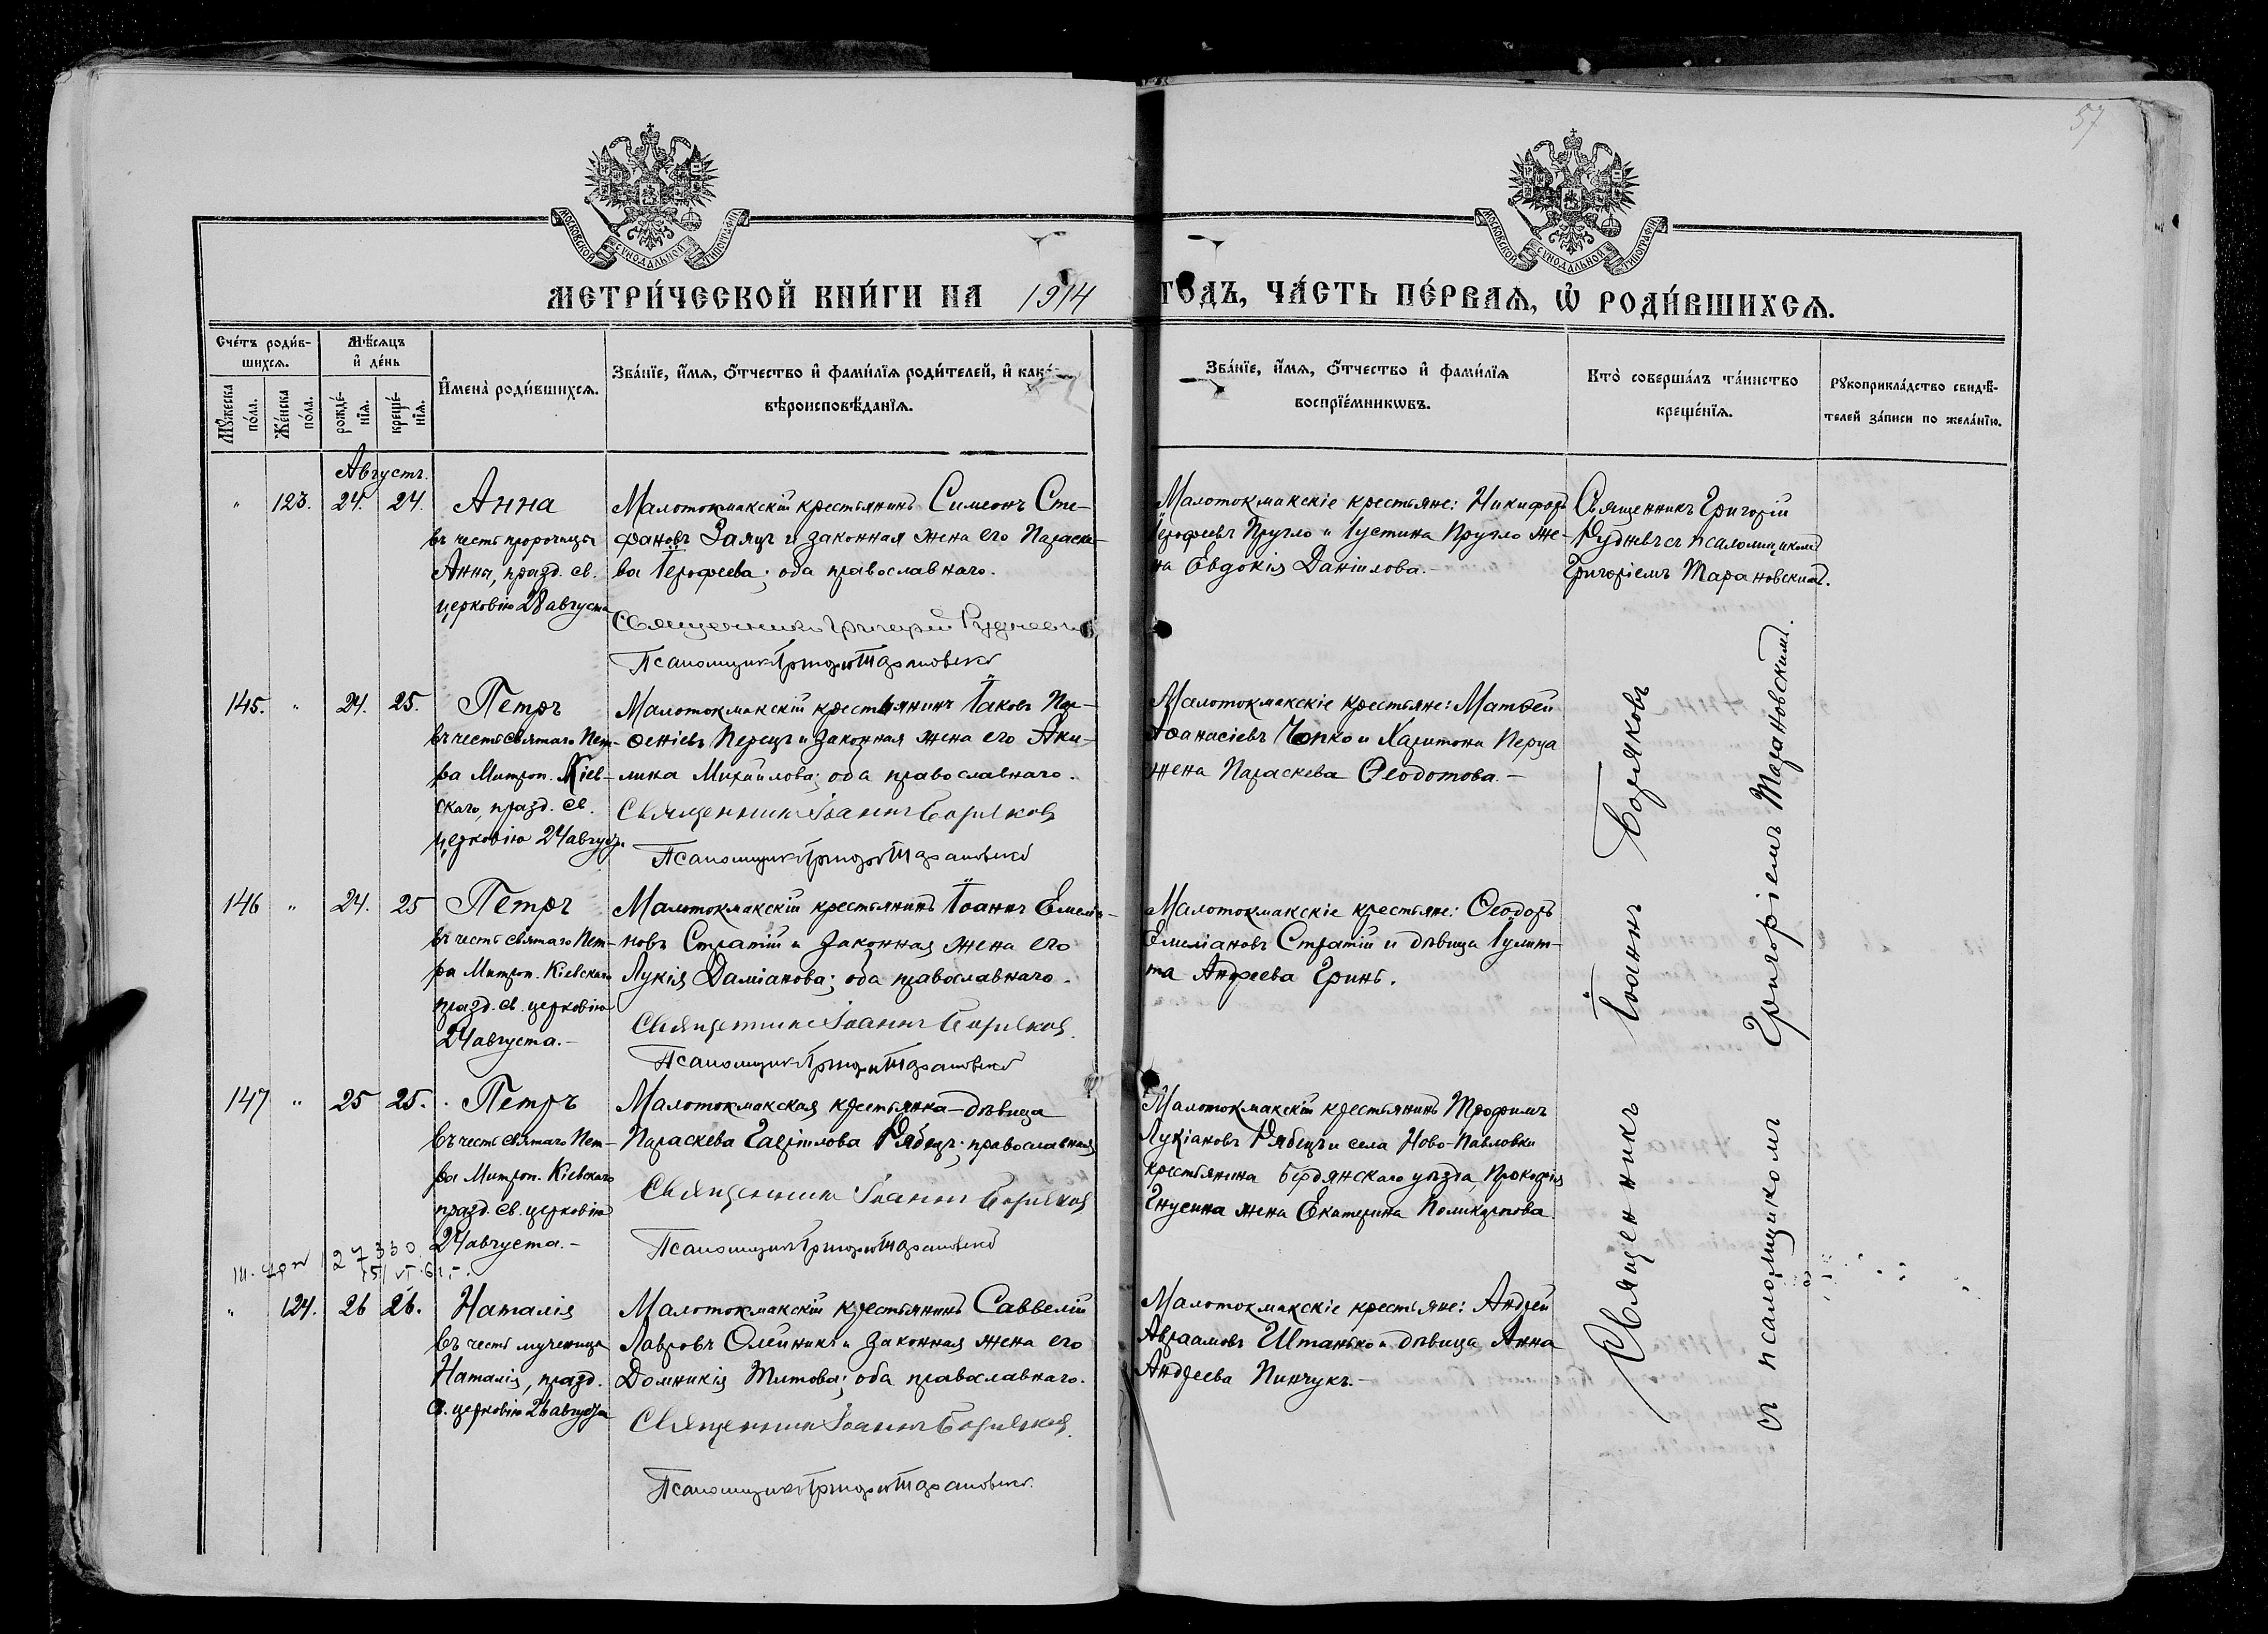 57
МОСКОВСКОЙ СУНОДАЛЬНОЙ ТИПОГРАФІИ
МОСКОВСКОЙ СУНОДАЛЬНОЙ ТИПОГРАФІИ
МЕТРИ́ЧЕСКОЙ КНИ́ГИ НА 1914 ГОДЪ, ЧА́СТЬ ПЕ́РВАѦ, Ѡ҆ РОДИ́ВШИХСѦ.
Сче́тъ роди́в-
шихсѧ.
Мꙋ́жеска по́ла.
Же́нска по́ла.
Мѣ́сѧцъ
и҆ де́нь
рожде́-
нїѧ.
креще́-
нїѧ.
И҆мена̀ роди́вшихсѧ.
Зва́нїе, и҆́мѧ, ѻ҆́тчество и҆ фами́лїѧ роди́телей, и҆ како́-
вѣроисповѣ́данїѧ.
Зва́нїе, и҆́мѧ, ѻ҆́тчество и҆ фами́лїѧ
воспрїе́мникѡвъ.
Кто̀ соверша́лъ та́инство
креще́нїѧ.
Рꙋкоприкла́дство свидѣ́-
телей за́писи по жела́нїю.
Августъ.
" 123. 24. 24. Анна
въ честь пророчицы
Анны, празд. св.
церковію 28 августа
Малотокмакскій крестьянинъ Симеонъ Сте-
фановъ Заяцъ и законная жена его Параске-
ва Іерофеева; оба православнаго.
Священникъ Григорій Рудневъ
Псаломщикъ Григорій Тарановскій
Малотокмакскіе крестьяне: Никифоръ
Іерофеевъ Пругло и Іустина Пругло же-
на Евдокія Даніилова.-
Священникъ Григорій
Рудневъ съ псаломщикомъ
Григоріемъ Тарановскимъ.
145. " 24. 25. Петръ
въ честь святаго Пет-
ра Митроп. Кіев-
скаго, празд. св.
церковію 24 августа
Малотокмакскій крестьянинъ Іаковъ Пар-
ѳеніевъ Перецъ и законная жена его Аки-
лина Михаилова; оба православнаго.
Священникъ Іоаннъ Боряковъ
Псаломщикъ Григорій Тарановскій
Малотокмакскіе крестьяне: Матѳей
Аѳанасіевъ Чопко и Харитона Перца
жена Параскева Ѳеодотова.-
146 " 24. 25 Петръ
въ честь святаго Пет-
ра Митроп. Кіевскаго
празд. св. церковію
24 августа.-
Малотокмакскій крестьянинъ Іоаннъ Емелiа-
новъ Стратій и законная жена его
Лукія Даміанова; оба православнаго.
Священникъ Іоаннъ Боряковъ
Псаломщикъ Григорій Тарановскій
Малотокмакскіе крестьяне: Ѳеодоръ
Емеліановъ Стратій и дѣвица Іулит-
та Андреева Гринь.
147 " 25 25. Петръ
въ честь святаго Пет-
ра Митроп. Кіевскаго
празд. св. церковію
24 августа.-
Малотокмакская крестьянка-дѣвица
Параскева Гавріилова Рябецъ; православная
Священникъ Іоаннъ Боряковъ
Псаломщикъ Григорій Тарановскій
Малотокмакскій крестьянинъ Трофимъ
Лукіановъ Рябецъ и села Ново-Павловки
крестьянина Бердянскаго уѣзда, Прокофія
Гнусина жена Екатерина Поликарпова
127330
" 124. 26 26. Наталія
въ честь мученицы
Наталіи, празд.
св. церковію 26 августа
Малотокмакскій крестьянинъ Саввелій
Лавровъ Олейникъ и законная жена его
Домникія Титова; оба православнаго.
Священникъ Іоаннъ Боряковъ
Псаломщикъ Григорій Тарановскій
Малотокмакскіе крестьяне: Андрей
Авраамовъ Штанько и дѣвица Анна
Андреева Пинчукъ.-
Священникъ Іоаннъ Боряковъ
съ псаломщикомъ Григоріемъ Тарановскимъ.